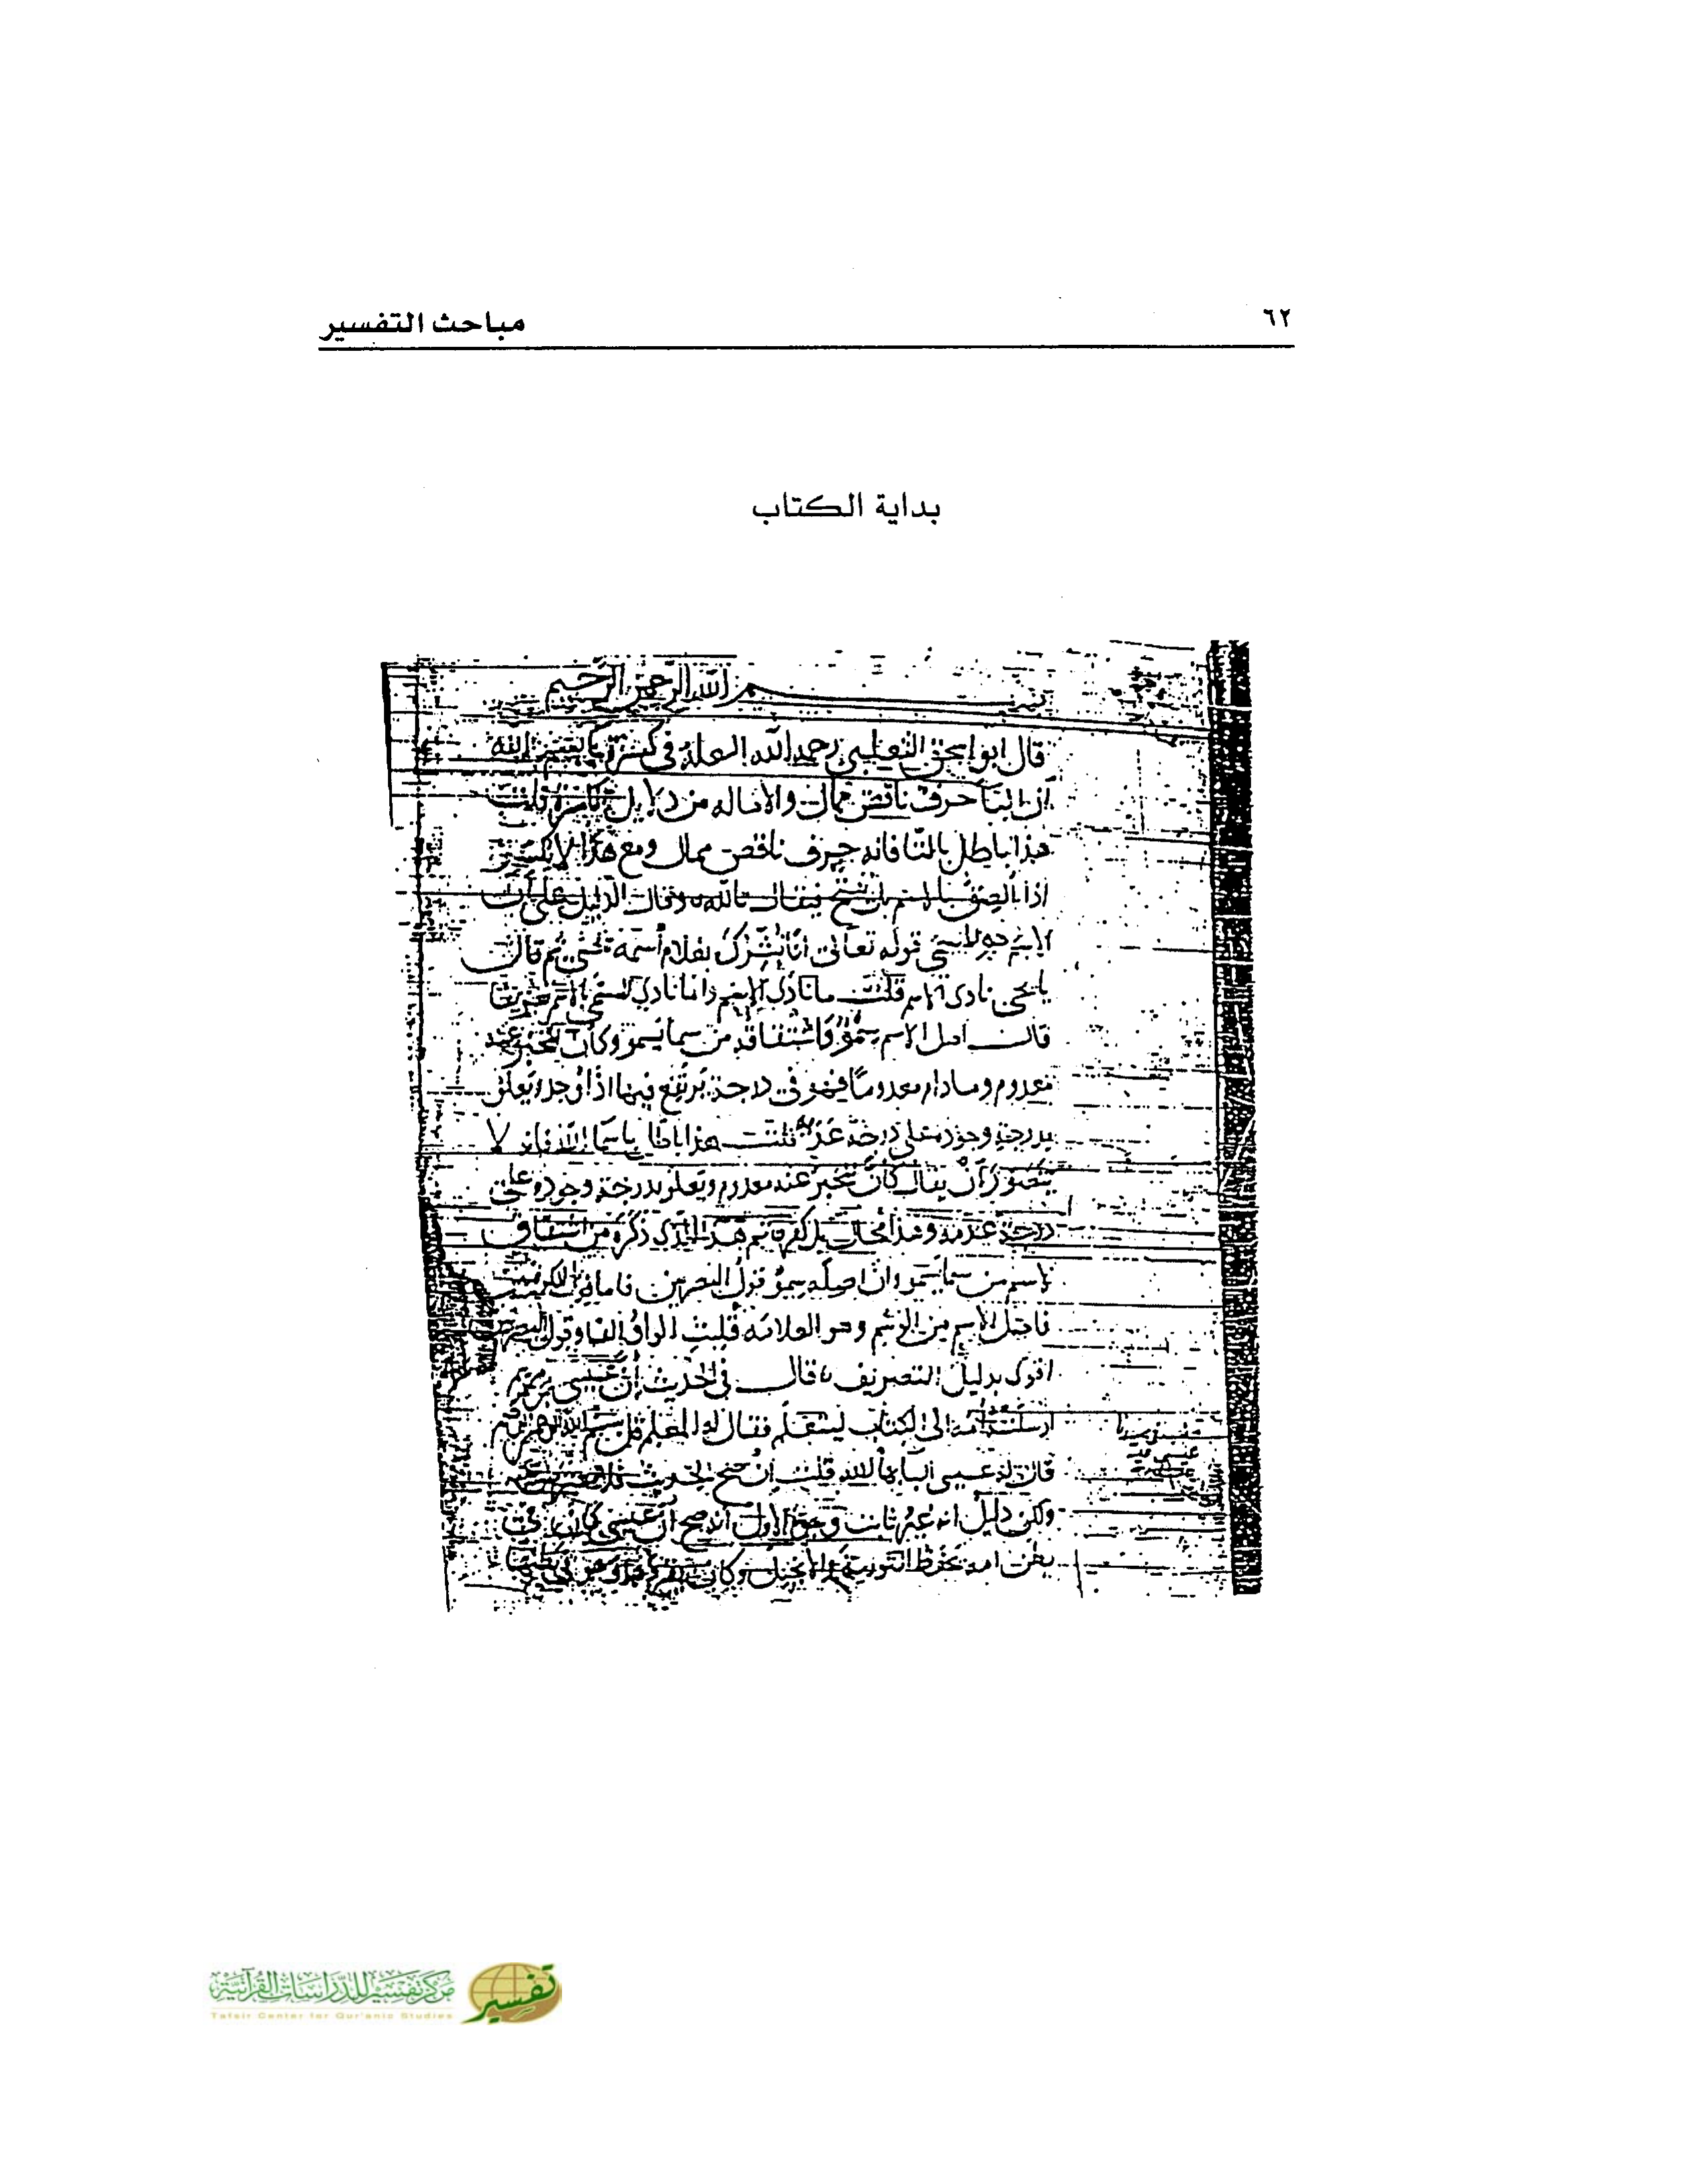 ٦٢
مباحث التفسير
بداية الكتاب
الله الرحمن الرحيم
قال ابو اسحق الثعلبي رحمه الله العلة في كسرة باء بسم الله
ان البا حرف ناقص ممال والاماله من دلايل الكسرة قلت
هذا باطل بالتا فانه حرف ناقص ممال ومع هذا لا يكسر
اذا الصق بالاسم بل يفتح فيقال تالله وقال الدليل على ان
الاسم هو المسمى قوله تعالى انا نبشرك بغلام اسمه يحيى ثم قال
يا يحيى نادى الاسم قلت ما نادى الاسم وانما نادى المسمى
قال اصل الاسم سمو واشتقاقه من سما يسمو وكان المخبر عنه
معدوم وما دام معدوما فهو في درجة يرتفع فيها اذا وجد ويعلو
بدرجة وجوده على درجة عدمه قلت هذا باطل باسما الله فانه لا
يتصور ان يقال كان المخبر عنه معدوم ويعلو بدرجة وجوده على
درجة عدمه وهذا محال بل كفر ثم هذا الذي ذكره من اشتقاق
الاسم من سما يسمو وان اصله سمو قول البصريين فاما قول الكوفيين
فاصل الاسم من الوسم وهو العلامه قلبت الواو الفا وقول البصريين
اقوى بدليل التصريف قال في الحديث ان عيسى بن مريم
ارسلته امه الى الكتاب ليتعلم فقال له المعلم قل بسم الله الرحمن
قال له عيسى البا بها الله قلت ان صح الحديث
ولكن دليل انه غير ثابت الاول ان عيسى كان في
بطن امه يحفظ التورية والانجيل وكان
مركز تفسير للدراسات القرآنية
Tafsir Center for Qur'anic Studies
تفسير